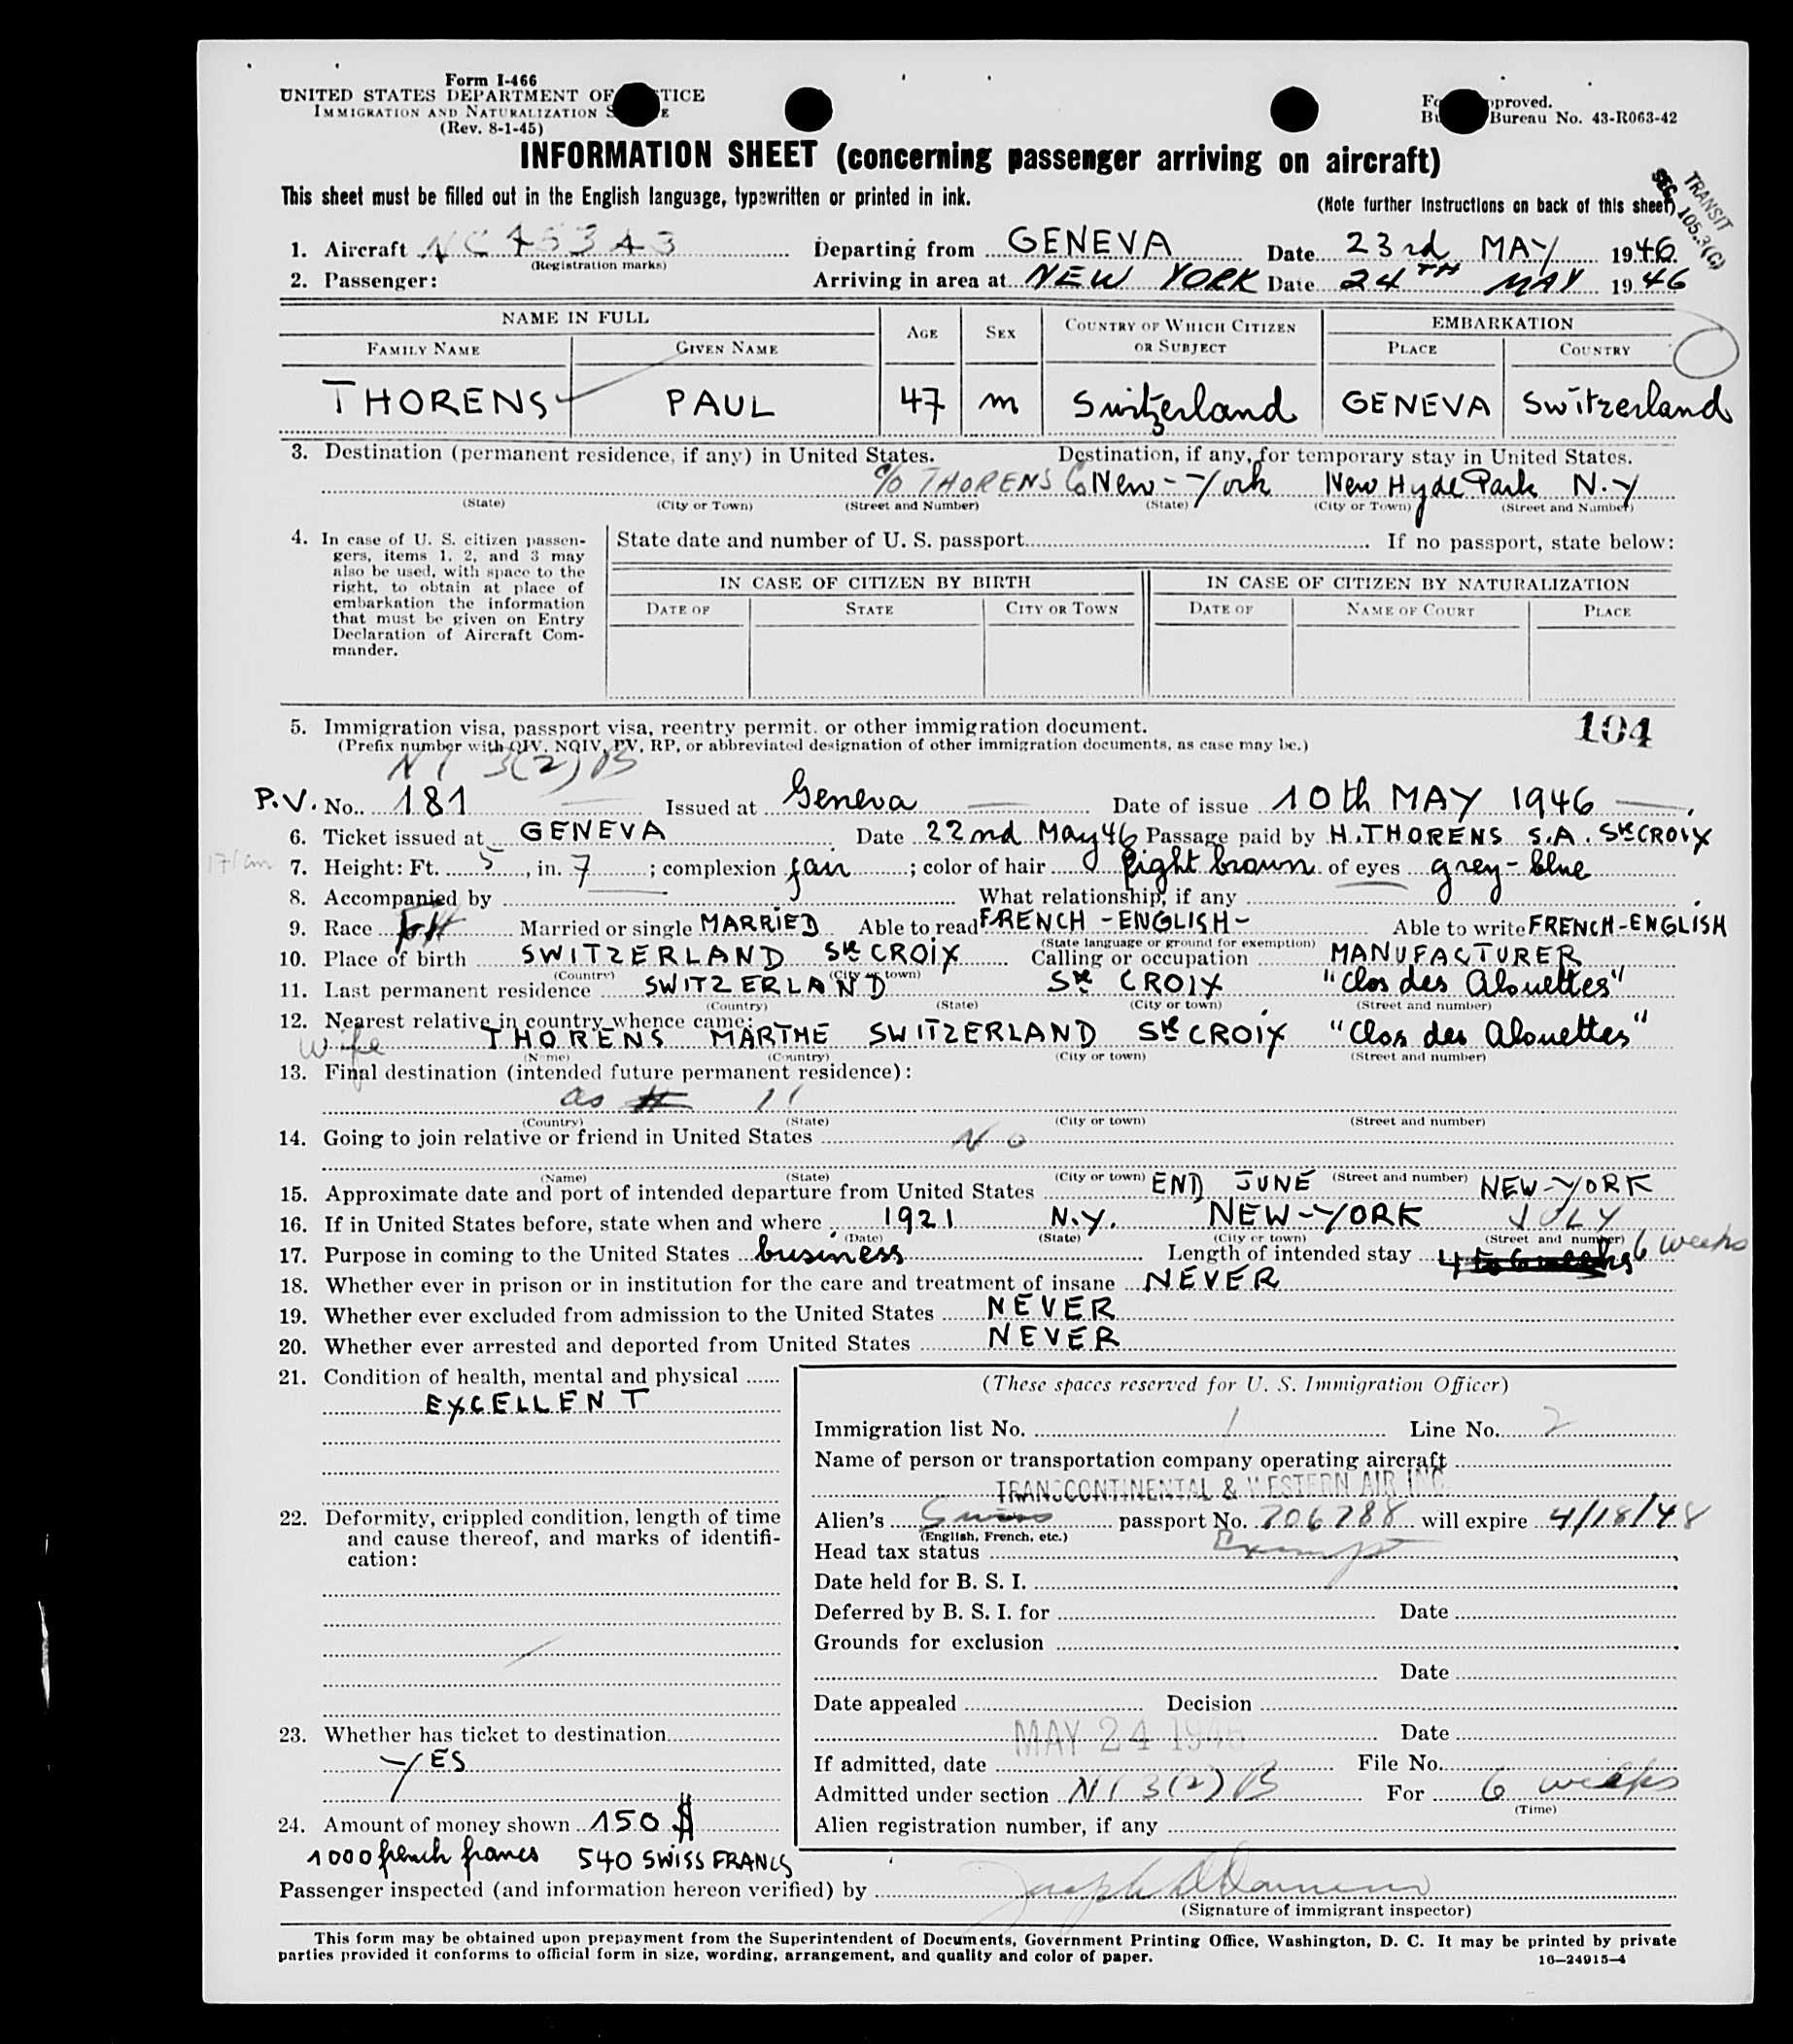 Form I-466
UNITED STATES DEPARTMENT OF
IMMIGRATION AND NATURALIZATION
(Rev. 8-1-45)
Bureau No. 43-R063-42
INFORMATION SHEET (concerning passenger arriving on aircraft)
This sheet must be filled out in the English language, typewritten or printed in ink.
(Note further instructions on back of this sheet)
TRANSIT
SEC. 105.3(C)
1. Aircraft Departing from GENEVA Date 23rd MAY 1946
(Registration marks)
2. Passenger: Arriving in area at NEW YORK Date 24TH MAY 1946
NAME IN FULL AGE SEX COUNTRY OF WHICH CITIZEN OR SUBJECT EMBARKATION
FAMILY NAME GIVEN NAME PLACE COUNTRY
THORENS PAUL 47 m Switzerland GENEVA Switzerland
3. Destination (permanent residence, if any) in United States. Destination, if any, for temporary stay in United States.
c/o THORENS Co New-York New Hyde Park N.Y
(State) (City or Town) (Street and Number) (State) (City or Town) (Street and Number)
4. In case of U. S. citizen passen-
gers, items 1, 2, and 3 may
also be used, with space to the
right, to obtain at place of
embarkation the information
that must be given on Entry
Declaration of Aircraft Com-
mander.
State date and number of U. S. passport If no passport, state below:
IN CASE OF CITIZEN BY BIRTH IN CASE OF CITIZEN BY NATURALIZATION
DATE OF STATE CITY OR TOWN DATE OF NAME OF COURT PLACE
104
5. Immigration visa, passport visa, reentry permit. or other immigration document.
(Prefix number with QIV, NQIV, PV, RP, or abbreviated designation of other immigration documents, as case may be.)
3(2)B
P.V. No. 181 Issued at Geneva Date of issue 10th MAY 1946
6. Ticket issued at GENEVA Date 22nd May 46 Passage paid by H. THORENS S.A. Ste CROIX
171cm
7. Height: Ft. 5, in. 7; complexion fair; color of hair light brown of eyes grey-blue
8. Accompanied by What relationship, if any
9. Race Married or single MARRIED Able to read FRENCH - ENGLISH - Able to write FRENCH-ENGLISH
(State language or ground for exemption)
10. Place of birth SWITZERLAND Ste CROIX Calling or occupation MANUFACTURER
(Country) (City or town)
11. Last permanent residence SWITZERLAND Ste CROIX "Clos des Alouettes"
(Country) (State) (City or town) (Street and number)
12. Nearest relative in country whence came:
wife THORENS MARTHE SWITZERLAND Ste CROIX "Clos des Alouettes"
(Name) (Country) (City or town) (Street and number)
13. Final destination (intended future permanent residence):
as 11
(Country) (State) (City or town) (Street and number)
14. Going to join relative or friend in United States No
(Name) (State) (City or town) (Street and number)
15. Approximate date and port of intended departure from United States END JUNE NEW-YORK
16. If in United States before, state when and where 1921 N.Y. NEW-YORK JULY
(Date) (State) (City or town) (Street and number)
17. Purpose in coming to the United States business Length of intended stay 4 to 6 weeks 6 weeks
18. Whether ever in prison or in institution for the care and treatment of insane NEVER
19. Whether ever excluded from admission to the United States NEVER
20. Whether ever arrested and deported from United States NEVER
21. Condition of health, mental and physical
EXCELLENT
22. Deformity, crippled condition, length of time
and cause thereof, and marks of identifi-
cation:
23. Whether has ticket to destination
YES
24. Amount of money shown 150 $
1000 french francs 540 SWISS FRANCS
(These spaces reserved for U. S. Immigration Officer)
Immigration list No. 1 Line No. 2
Name of person or transportation company operating aircraft
TRANSCONTINENTAL & WESTERN AIR INC.
Alien's Swiss passport No. 706788 will expire 4/18/48
(English, French, etc.)
Head tax status Exempt
Date held for B. S. I.
Deferred by B. S. I. for Date
Grounds for exclusion
Date
Date appealed Decision
MAY 24 1946 Date
If admitted, date File No.
Admitted under section 3(2)B For 6 weeks
(Time)
Alien registration number, if any
Passenger inspected (and information hereon verified) by
(Signature of immigrant inspector)
This form may be obtained upon prepayment from the Superintendent of Documents, Government Printing Office, Washington, D. C. It may be printed by private
parties provided it conforms to official form in size, wording, arrangement, and quality and color of paper.
16—24915-4